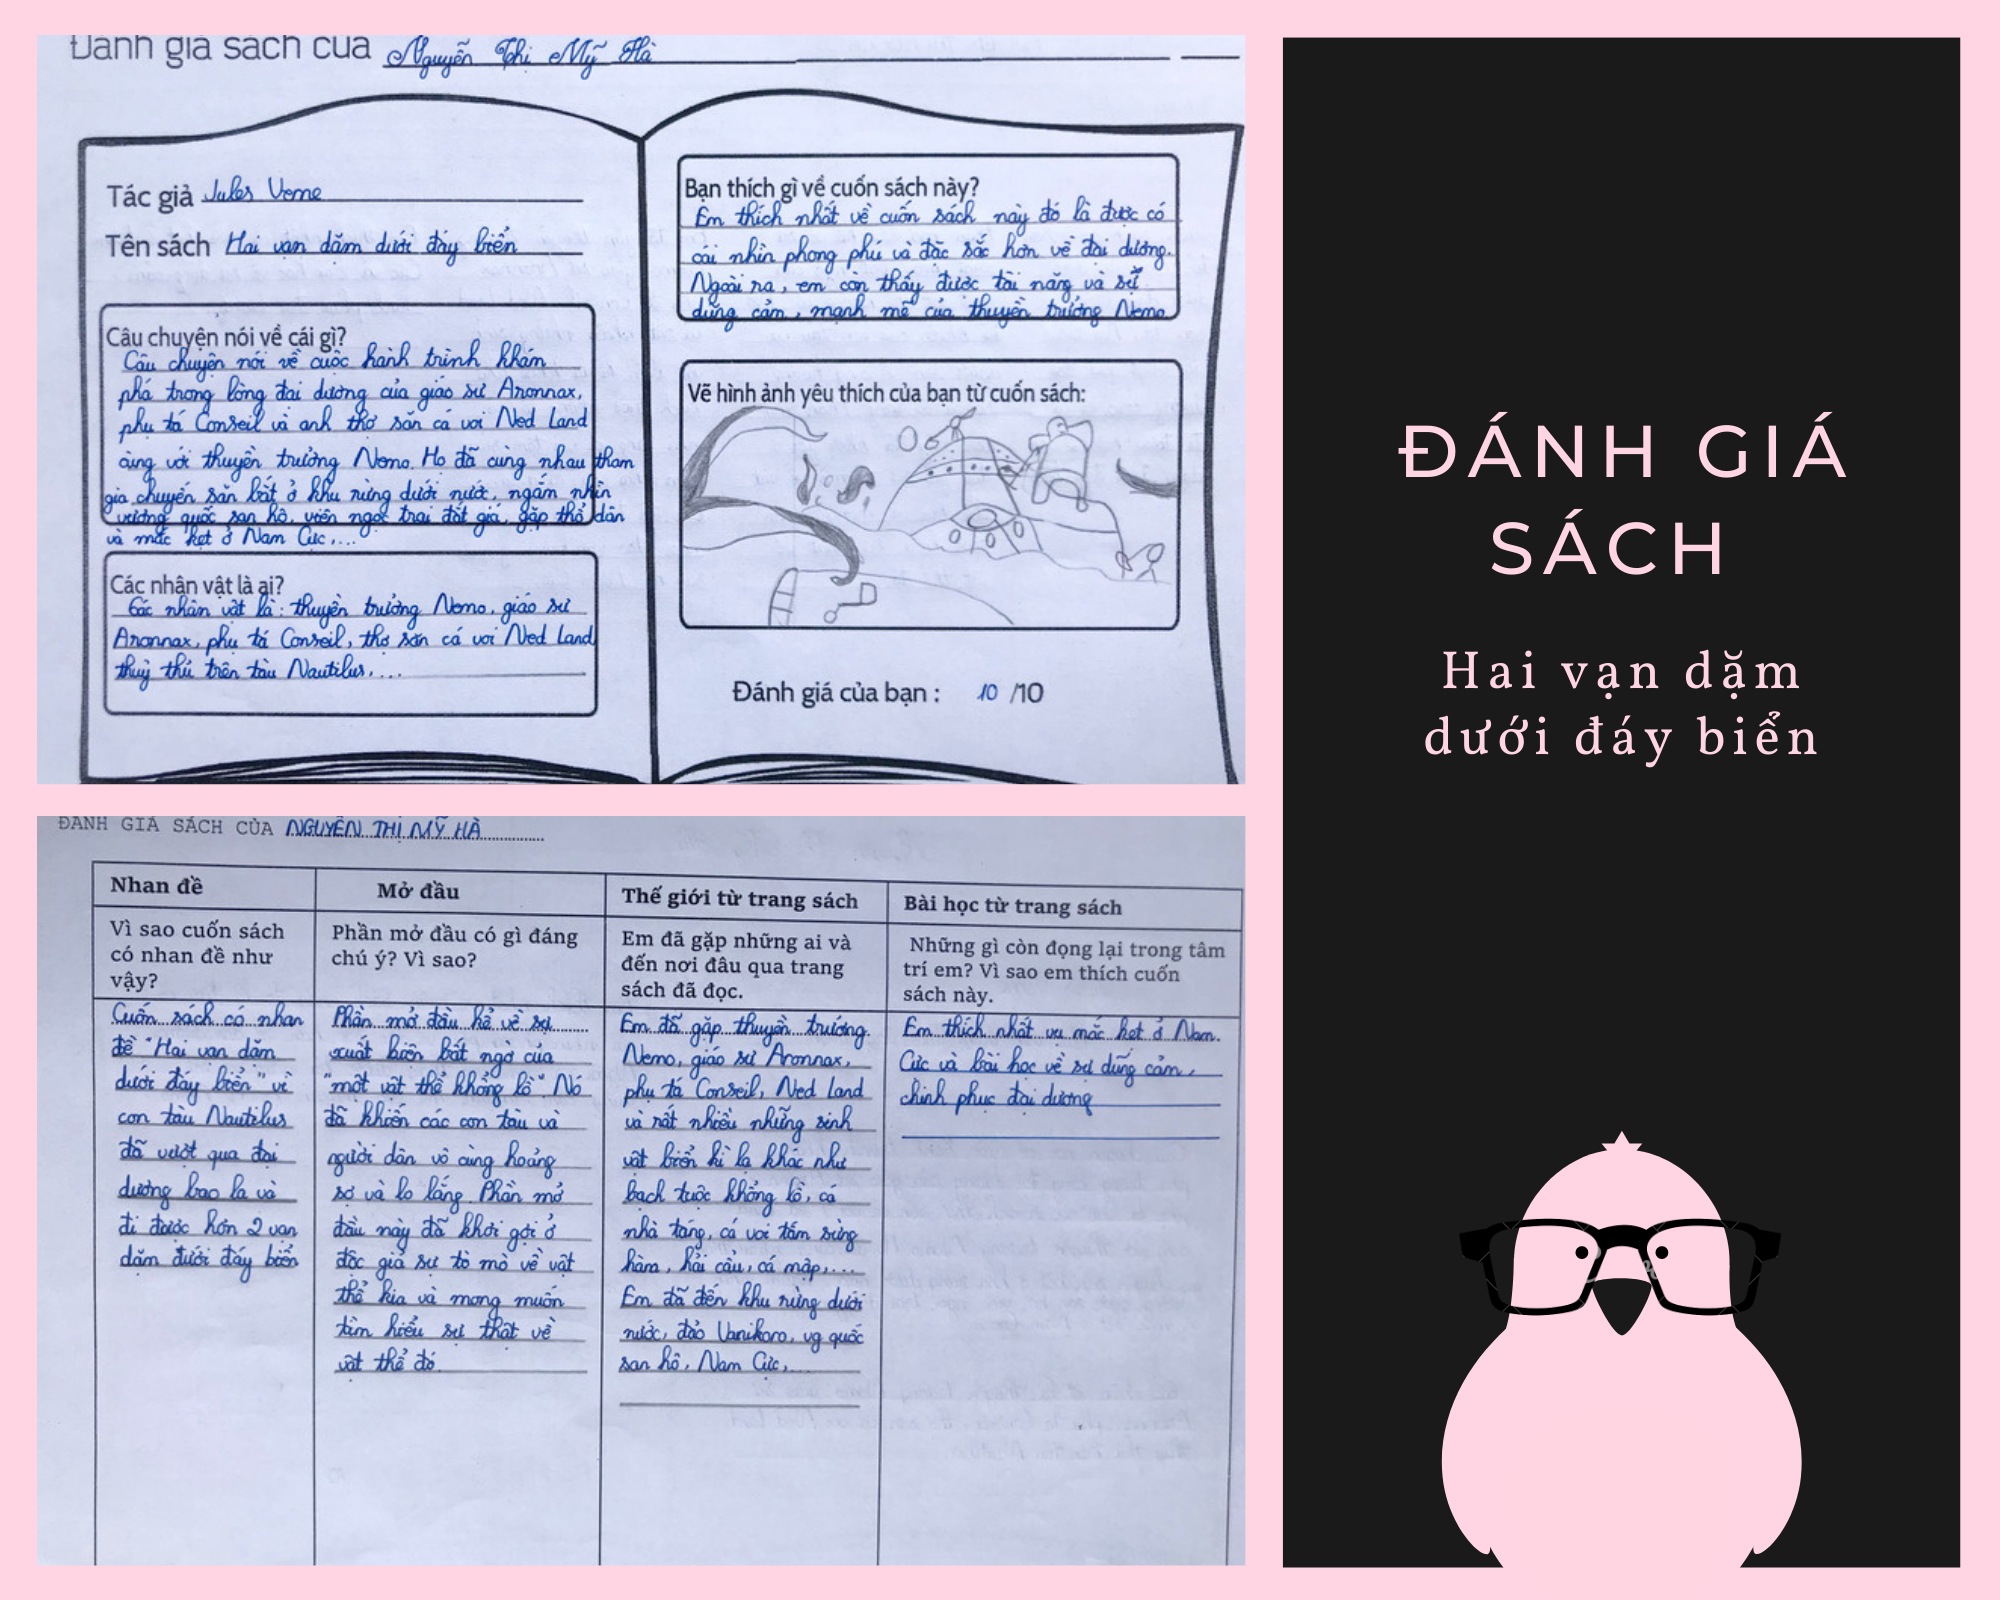 Đánh giá sách của Nguyễn Thị Mỹ Hà
Tác giả Jules Verne
Tên sách Hai vạn dặm dưới đáy biển
Câu chuyện nói về cái gì?
Câu chuyện nói về cuộc hành trình khám
phá trong lòng đại dương của giáo sư Aronnax,
phụ tá Conseil và anh thợ săn cá voi Ned Land
cùng với thuyền trưởng Nemo. Họ đã cùng nhau tham
gia chuyến săn bắt ở khu rừng dưới nước, ngắm nhìn
vương quốc san hô, viên ngọc trai đắt giá, gặp thổ dân
và mắc kẹt ở Nam Cực,...
Các nhân vật là ai?
Các nhân vật là: thuyền trưởng Nemo, giáo sư
Aronnax, phụ tá Conseil, thợ săn cá voi Ned Land
thuỷ thủ trên tàu Nautilus,...
Bạn thích gì về cuốn sách này?
Em thích nhất về cuốn sách này đó là được có
cái nhìn phong phú và đặc sắc hơn về đại dương.
Ngoài ra, em còn thấy được tài năng và sự
dũng cảm, mạnh mẽ của thuyền trưởng Nemo
Vẽ hình ảnh yêu thích của bạn từ cuốn sách:
Đánh giá của bạn : 10 /10
ĐÁNH GIÁ SÁCH CỦA NGUYỄN THỊ MỸ HÀ
Nhan đề
Vì sao cuốn sách
có nhan đề như
vậy?
Cuốn sách có nhan
đề "Hai vạn dặm
dưới đáy biển" vì
con tàu Nautilus
đã vượt qua đại
dương bao la và
đi được hơn 2 vạn
dặm dưới đáy biển
Mở đầu
Phần mở đầu có gì đáng
chú ý? Vì sao?
Phần mở đầu kể về sự
xuất hiện bất ngờ của
"một vật thể khổng lồ". Nó
đã khiến các con tàu và
người dân vô cùng hoảng
sợ và lo lắng. Phần mở
đầu này đã khơi gợi ở
độc giả sự tò mò về vật
thể kia và mong muốn
tìm hiểu sự thật về
vật thể đó.
Thế giới từ trang sách
Em đã gặp những ai và
đến nơi đâu qua trang
sách đã đọc.
Em đã gặp thuyền trưởng
Nemo, giáo sư Aronnax,
phụ tá Conseil, Ned Land
và rất nhiều những sinh
vật biển kì lạ khác như
bạch tuộc khổng lồ, cá
nhà táng, cá voi tấm sừng
hàm, hải cẩu, cá mập,...
Em đã đến khu rừng dưới
nước, đảo Vanikoro, vg quốc
san hô, Nam Cực,...
Bài học từ trang sách
Những gì còn đọng lại trong tâm
trí em? Vì sao em thích cuốn
sách này.
Em thích nhất vụ mắc kẹt ở Nam
Cực và bài học về sự dũng cảm,
chinh phục đại dương
ĐÁNH GIÁ
SÁCH
Hai vạn dặm
dưới đáy biển